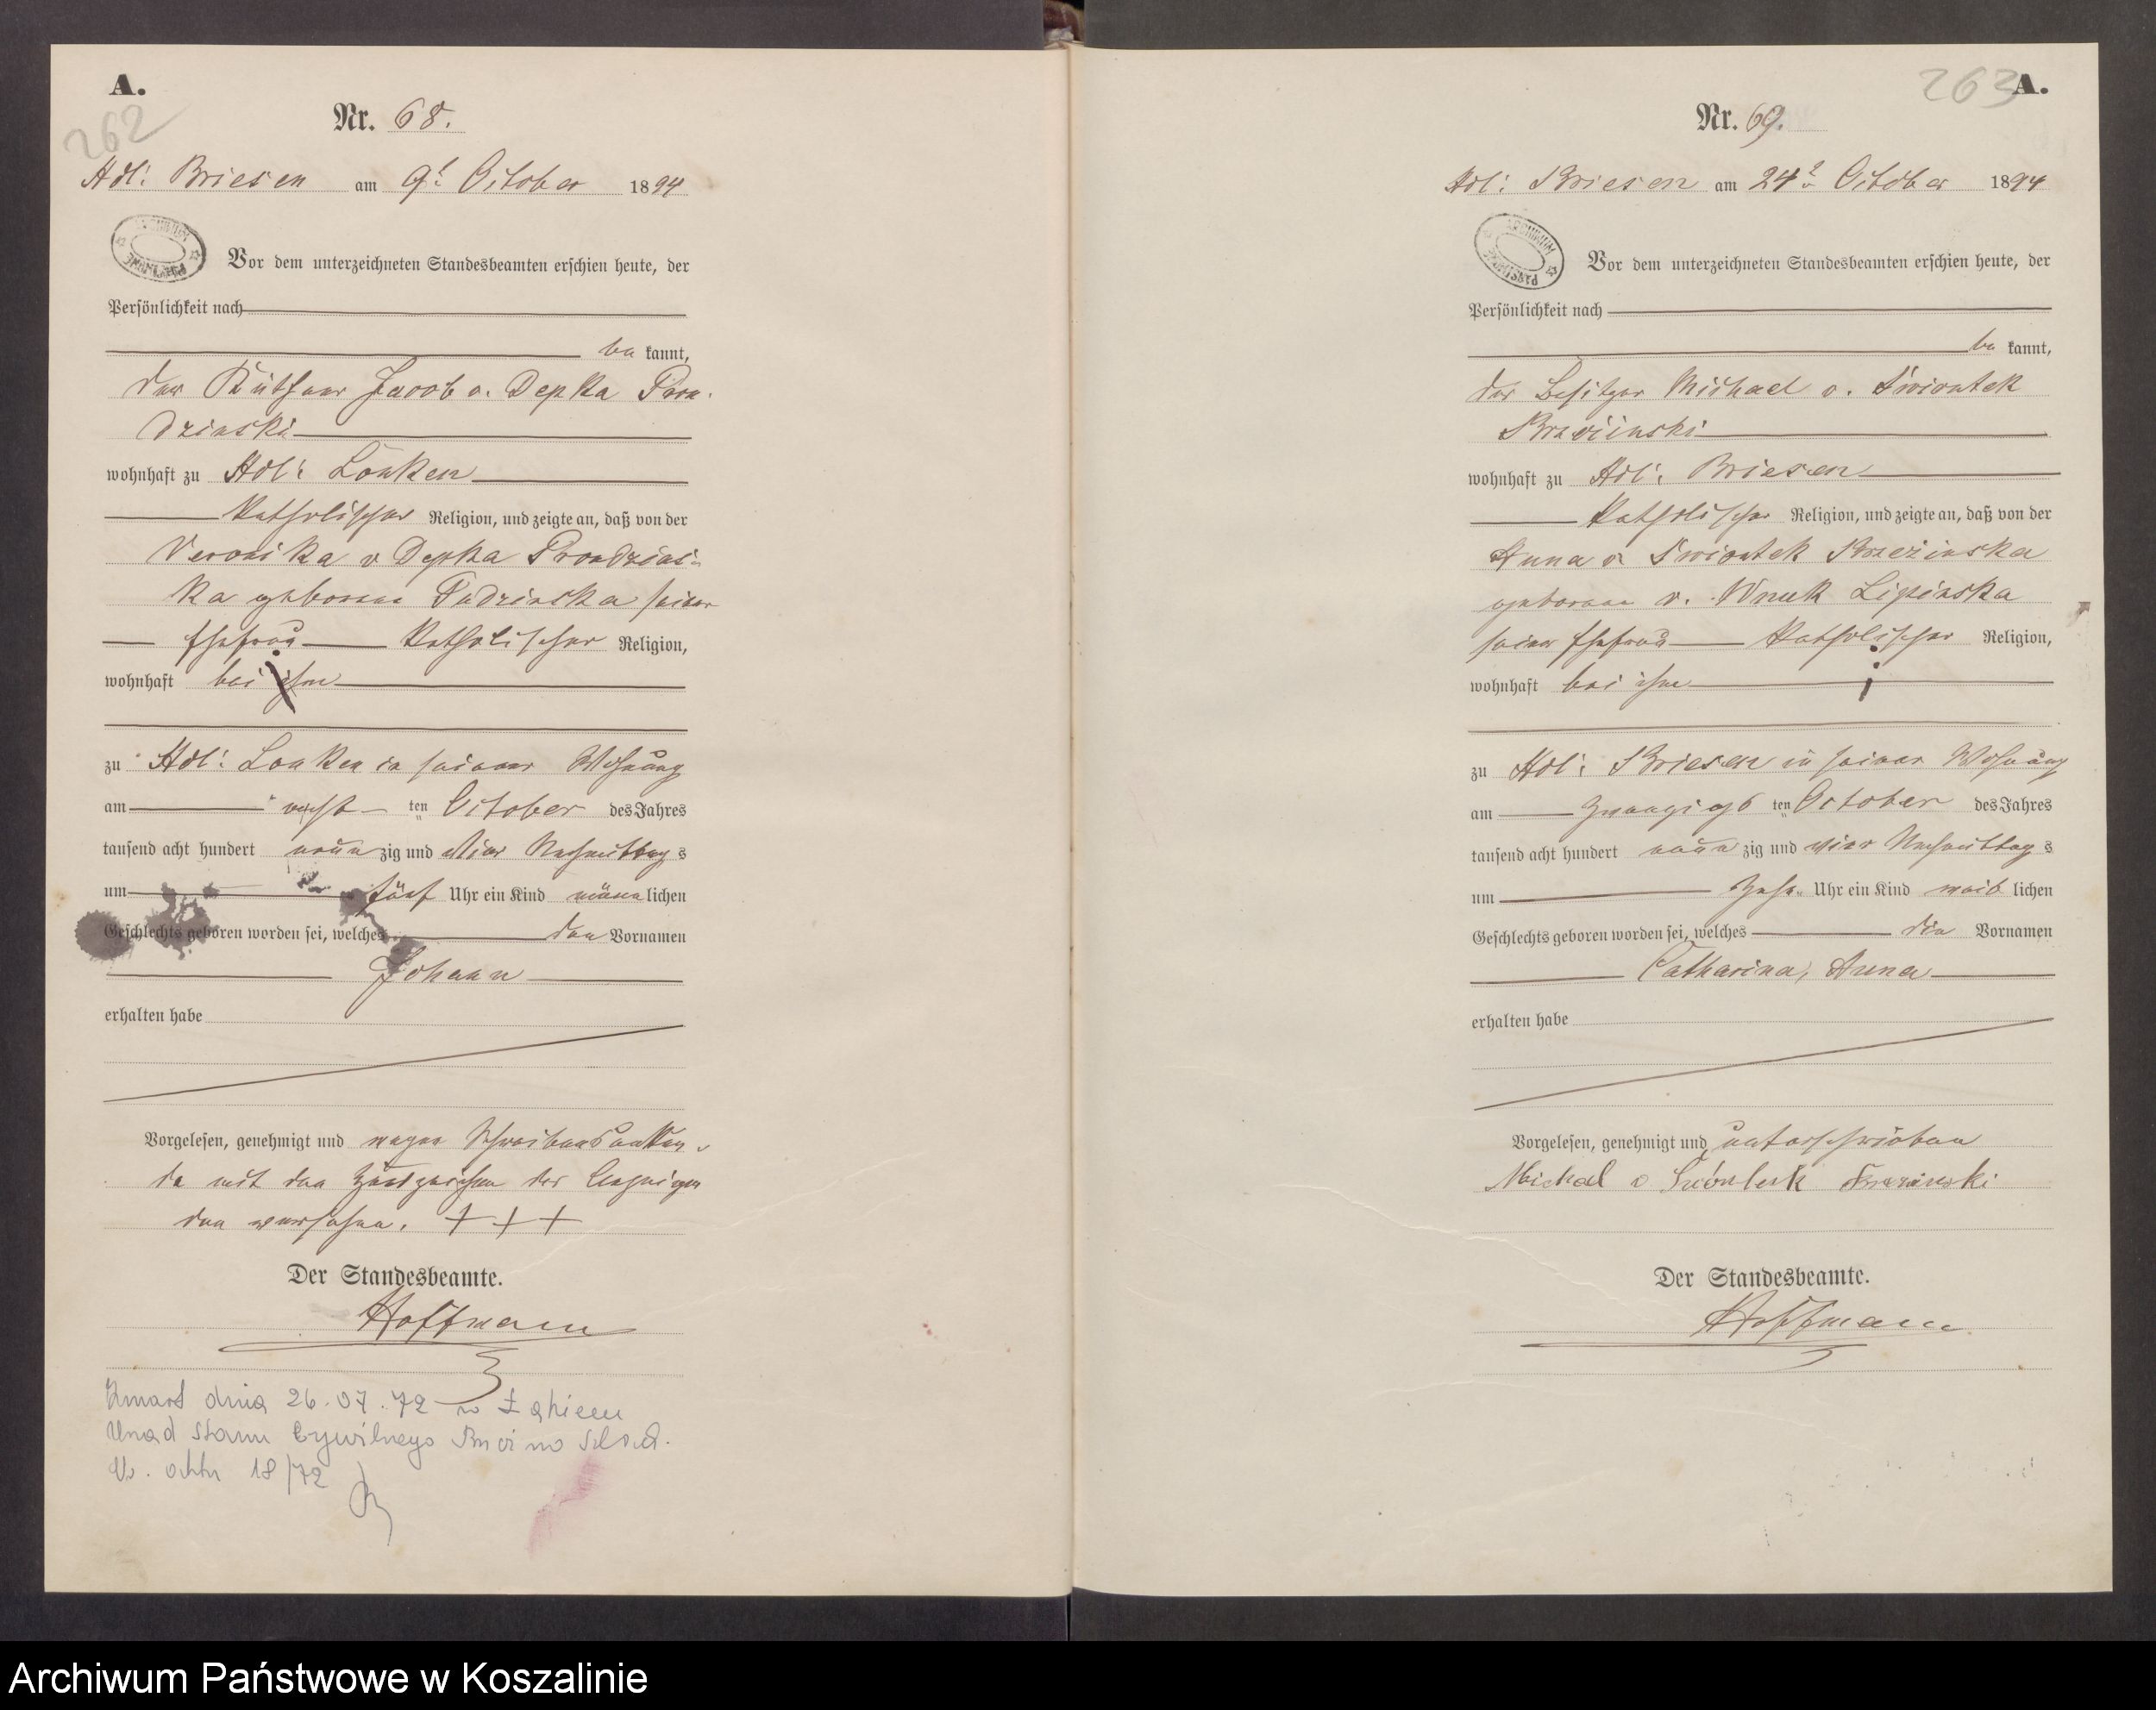 A.
262
Nr. 68.
Adl: Briesen am 9t October 1894
ARCHIWUM PAŃSTWOWE
Vor dem unterzeichneten Standesbeamten erschien heute, der
Persönlichkeit nach
be kannt,
der Jacob v. Depka Pron-
dzinski
wohnhaft zu Adl: Lonken
katholischer Religion, und zeigte an, daß von der
Veronika v Depka Prondzins-
ka geborene seiner
Ehefrau katholischer Religion,
wohnhaft bei ihm
zu Adl: Lonken in seiner Wohnung
am ten October des Jahres
tausend acht hundert neun zig und vier Nachmittag s
um fünf Uhr ein Kind männ lichen
Geschlechts geboren worden sei, welches den Vornamen
Johann
erhalten habe
Vorgelesen, genehmigt und wegen Schreibensunkun-
de mit den Handzeichen des Anzeigen
den versehen. + + +
Der Standesbeamte.
Hoffmann
Zmarł dnia 26.07.72 w
Urząd Stanu Cywilnego
Nr. aktu 18/72
263 A.
Nr. 69.
Adl: Briesen am 24t October 1894
ARCHIWUM PAŃSTWOWE
Vor dem unterzeichneten Standesbeamten erschien heute, der
Persönlichkeit nach
be kannt,
der Besitzer Michael v. Swiontek
Brzezinski
wohnhaft zu Adl: Briesen
katholischer Religion, und zeigte an, daß von der
Anna v Swiontek Brzezinska
geborene v. Wnuk Lipinska
seiner Ehefrau katholischer Religion,
wohnhaft bei ihm
zu Adl: Briesen in seiner Wohnung
am zwanzigs ten October des Jahres
tausend acht hundert neun zig und vier Nachmittag s
um zehn Uhr ein Kind weib lichen
Geschlechts geboren worden sei, welches die Vornamen
Catharina, Anna
erhalten habe
Vorgelesen, genehmigt und unterschrieben
Michal v
Der Standesbeamte.
Hoffmann
Archiwum Państwowe w Koszalinie